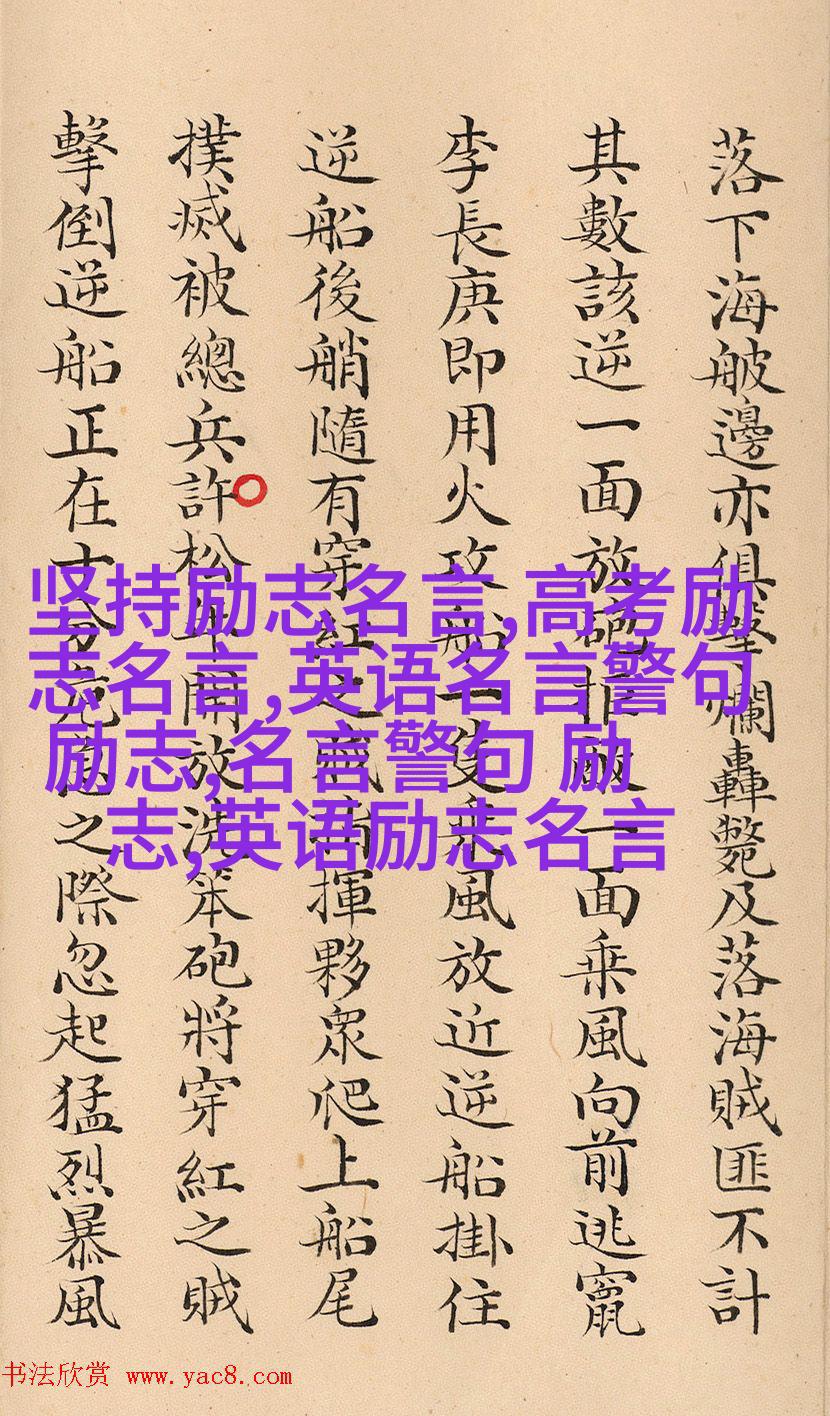 落下海艍邊亦俱擊爛轟斃及落海賊匪不計
其數該逆一面放砲拒敵一面乗風向前逃竄
李長庚即用火攻船一隻乗風放近逆船掛住
逆船後艄隨有穿紅之賊指揮夥衆爬上船尾
撲滅被總兵許松年開放洗笨砲將穿紅之賊
擊倒逆船正在十分危急之際忽起猛烈暴風
坚持励志名言,高考励
志名言,英语名言警句
励志,名言警句 励
志,英语励志名言
书法欣赏 www.yac8.com